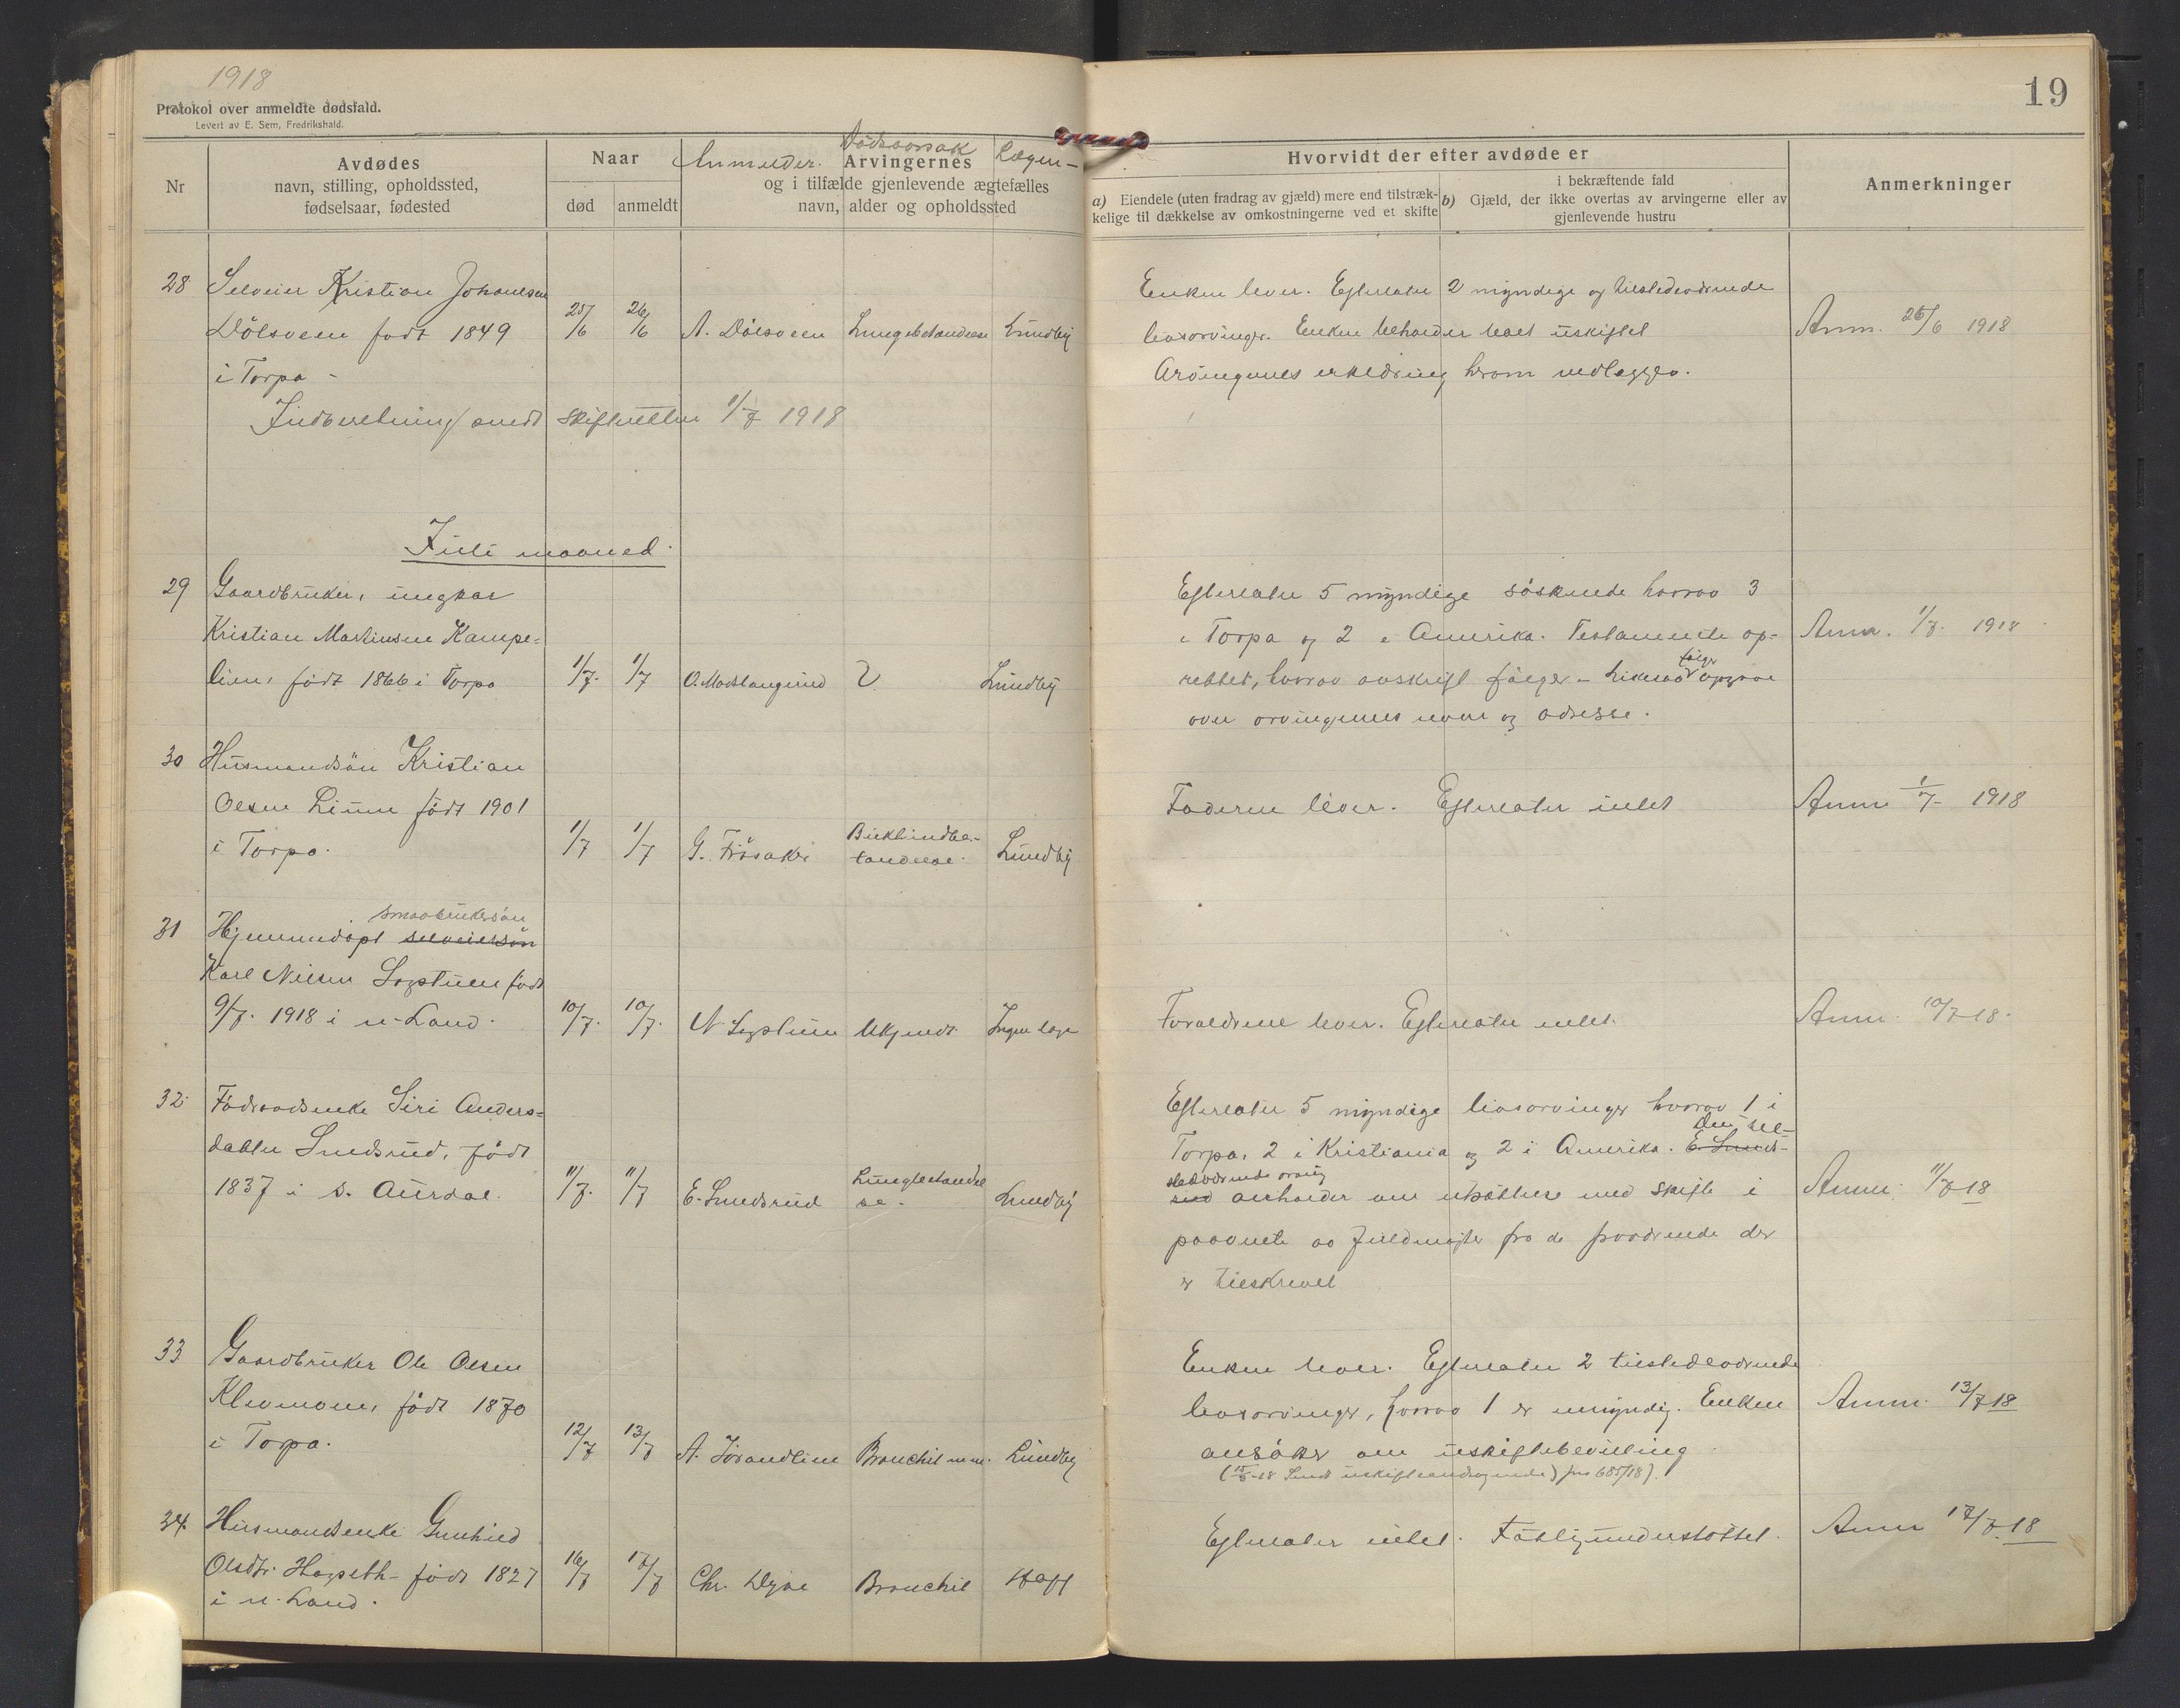 1918
Protokol over anmeldte dødsfald.
Levert av E. Sem, Fredrikshald.
19
Nr
Avdødes
navn, stilling, opholdssted,
fødselsaar, fødested
Naar
død
anmeldt
Anmelder.
Dödsaarsak
Lægen-
Arvingernes
og i tilfælde gjenlevende ægtefælles
navn, alder og opholdssted
Hvorvidt der efter avdøde er
a) Eiendele (uten fradrag av gjæld) mere end tilstræk-
kelige til dækkelse av omkostningerne ved et skifte
i bekræftende fald
b) Gjæld, der ikke overtas av arvingerne eller av
gjenlevende hustru
Anmerkninger
28 Selveier Kristian Johansen
Dölsveen født 1849
i Torpa -
25/6 26/6 A. Dölsveen Lungebetændelse Lundby
Enken lever. Efterlater 2 myndige og tilstedeværende
livsarvinger. Enken beholder boet uskiftet
Arvingernes erklæring herom vedlægges.
Anm. 26/6 1918
Indberetning sendt skifteretten 1/7 1918
Juli maaned.
29 Gaardbruker, ungkar
Kristian Martinsen Kampe=
lien, født 1866 i Torpa
1/7. 1/7 O. Madslangrud Lundby
Efterlater 5 myndige söskende hvorav 3
i Torpa og 2 i Amerika. Testamente op-
rettet, hvorav avskrift fölger - Likesaa fölger opgave
over arvingernes navn og adresse.
Anm. 1/7. 1918
30 Husmandsön Kristian
Olsen Liunn født 1901
i Torpa.
1/7 1/7 G. Frösaker Lundby
Faderen lever. Efterlater intet
Anm 1/7- 1918
31 Hjemmedöpt selveiersön smaabrukersön
Karl Nilsen Sogstuen født
9/7. 1918 i n-Land.
10/7. 10/7. N Sogstuen Ukjendt Ingen læge
Forældrene lever. Efterlater intet.
Anm. 10/7-18.
32. Födraadsenke Siri Anders=
datter Smedsrud, født
1837 i S. Aurdal.
11/7. 11/7 E. Smedsrud Lungebetændel
se. Lundby
Efterlater 5 myndige livsarvinger hvorav 1 i
Torpa, 2 i Kristiania og 2 i Amerika. E. Smeds- Den til-
rud stedværende arving anholder om utsættelse med skifte i
paavente av fuldmagter fra de fraværende der
er tilskrevet
Anm. 11/7-18
33 Gaardbruker Ole Olsen
Klevmoen, født 1870
i Torpa.
12/7 13/7 A. Jörandlien Bronchit m.m. Lundby
Enken lever. Efterlater 2 tilstedeværende
livsarvinger, hvorav 1 er umyndig. Enken
ansöker om uskiftebevilling
Anm. 13/7 18
34. Husmandsenke Gunhild
Olsdtr. Hagseth - født 1827
i n. Land.
16/7 17/7 Chr. Dyve Bronchit Hoff
Efterlater intet. Fattigunderstöttet.
Anm 17/7-18